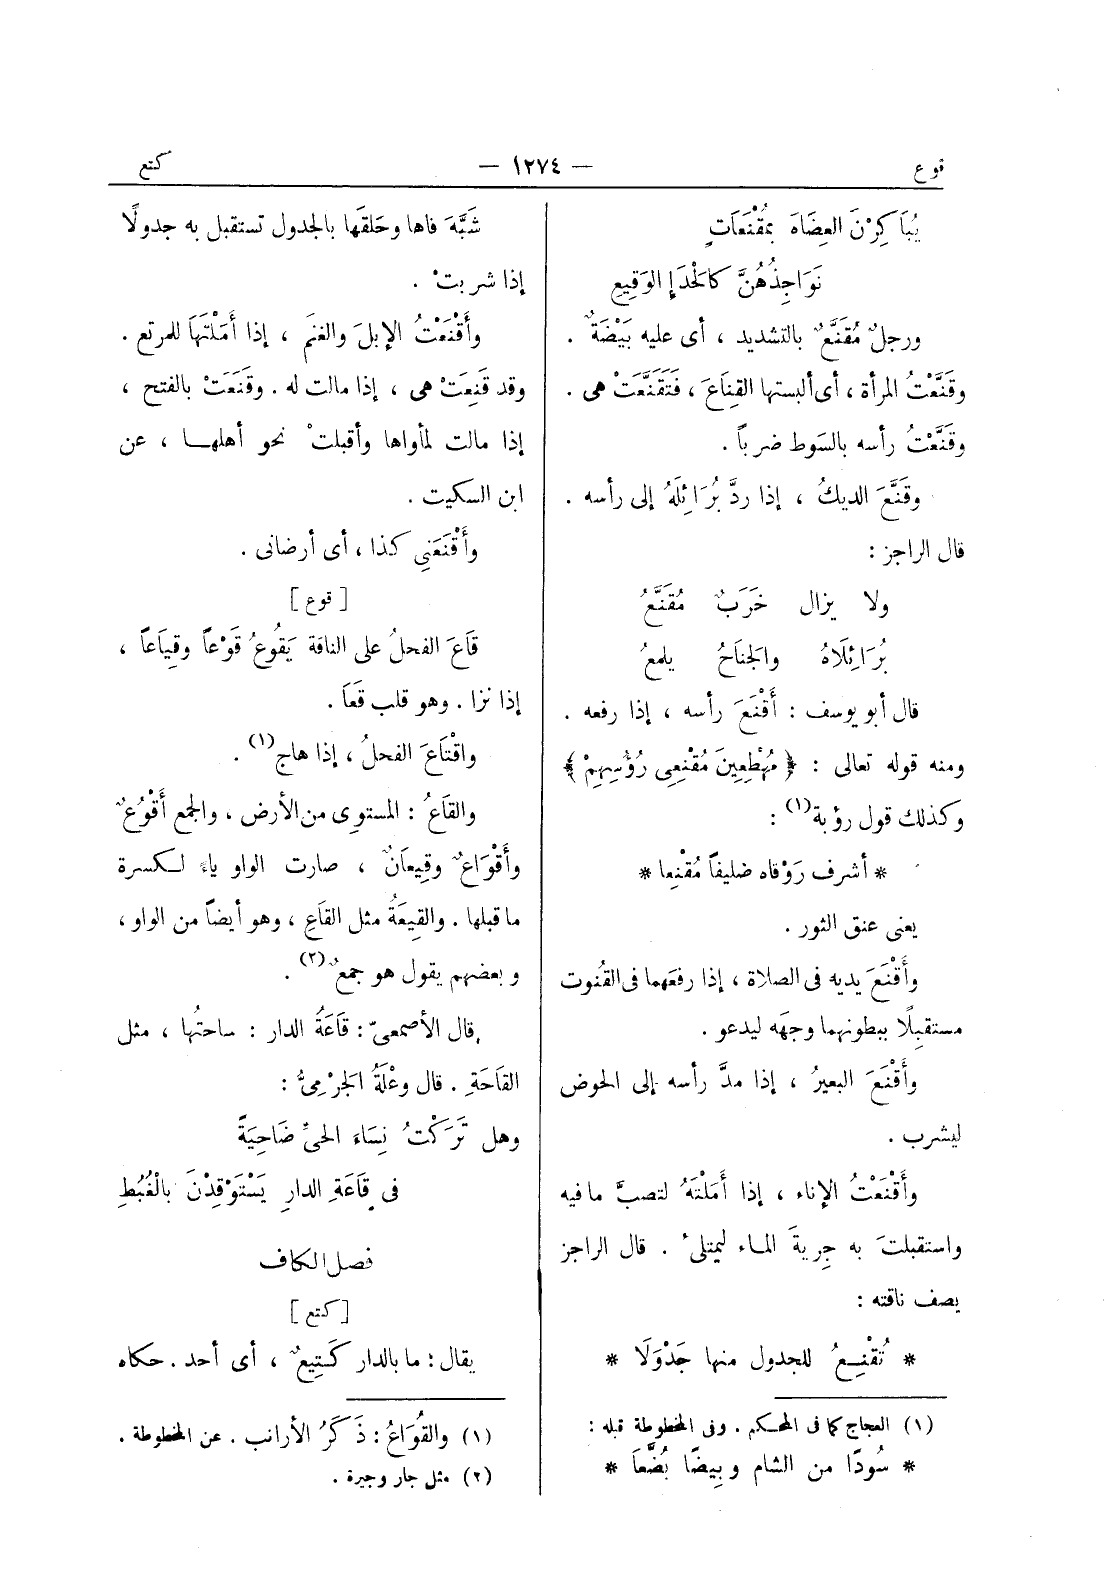 قوع — ١٢٧٤ — كتع
يُبَاكِرْنَ العِضَاهَ بمُقْنَعَاتٍ
نَوَاجِذُهُنَّ كالحَدَإِ الوَقِيعِ
ورجلٌ مُقَنَّعٌ بالتشديد ، أى عليه بَيْضَةٌ .
وقَنَّعْتُ المرأة ، أى ألبستها القِنَاعَ ، فَتَقَنَّعَتْ هى .
وقَنَّعْتُ رأسه بالسَوط ضرباً .
وقَنَّعَ الديكُ ، إذا ردَّ بُرَائِلَهُ إلى رأسه .
قال الراجز :
ولا يزال خَرَبٌ مُقَنَّعُ
بُرَائِلَاهُ والجَنَاحُ يلمعُ
قال أبو يوسف : أَقْنَعَ رأسه ، إذا رفعه .
ومنه قوله تعالى : ﴿ مُهْطِعِينَ مُقْنِعِى رُؤُسِهِمْ ﴾
وكذلك قول رؤبة(١) :
* أشرف رَوْقاه صَليفاً مُقْنِعا *
يعنى عنق الثور .
وأَقْنَعَ يديه فى الصلاة ، إذا رفعهما فى القُنوت
مستقبِلًا ببطونهما وجهَه ليدعو .
وأَقْنَعَ البعيرُ ، إذا مدَّ رأسه إلى الحوض
ليشرب .
وأَقْنَعْتُ الإناء ، إذا أَمَلْتَهُ لتصبَّ ما فيه
واستقبلتَ به جِريةَ الماء ليمتلئ . قال الراجز
يصف ناقته :
* تُقْنِعُ للجدول منها جَدْوَلَا *
(١) العجاج كما فى المحكم . وفى المخطوطة قبله :
* سُودًا من الشام وبِيضًا بُضَّعَا *
شَبَّهَ فاها وحَلقَها بالجدول تستقبل به جدولًا
إذا شربتْ .
وأَقْنَعْتُ الإبلَ والغنَم ، إذا أَمَلْتَهَا للمرتع .
وقد قَنِعَتْ هى ، إذا مالت له . وقَنَعَتْ بالفتح ،
إذا مالت لمأواها وأقبلتْ نحو أهلها ، عن
ابن السكيت .
وأَقْنَعَنِى كذا ، أى أرضانى .
[ قوع ]
قَاعَ الفحلُ على الناقة يَقُوعُ قَوْعاً وقِيَاعاً ،
إذا نزا . وهو قلب قَعَا .
واقْتَاعَ الفحلُ ، إذا هاج(١) .
والقَاعُ : المستوِى من الأرض ، والجمع أَقْوُعٌ
وأَقْوَاعٌ وقِيعَانٌ ، صارت الواو ياءً لكسرة
ما قبلها . والقِيعَةُ مثل القَاعِ ، وهو أيضاً من الواو ،
وبعضهم يقول هو جمعٌ(٢) .
قال الأصمعىّ : قَاعَةُ الدار : ساحتُها ، مثل
القَاحَةِ . قال وعْلَةُ الجَرْمِىُّ :
وهل تَرَكْتُ نِسَاءَ الحىِّ ضَاحِيَةً
فى قَاعَةِ الدارِ يَسْتَوْقِدْنَ بالْغُبُطِ
فصل الكاف
[ كتع ]
يقال : ما بالدار كَتِيعٌ ، أى أحد . حكاه
(١) والقُوَاعُ : ذَكَرُ الأرانب . عن المخطوطة .
(٢) مثل جار وجيرة .